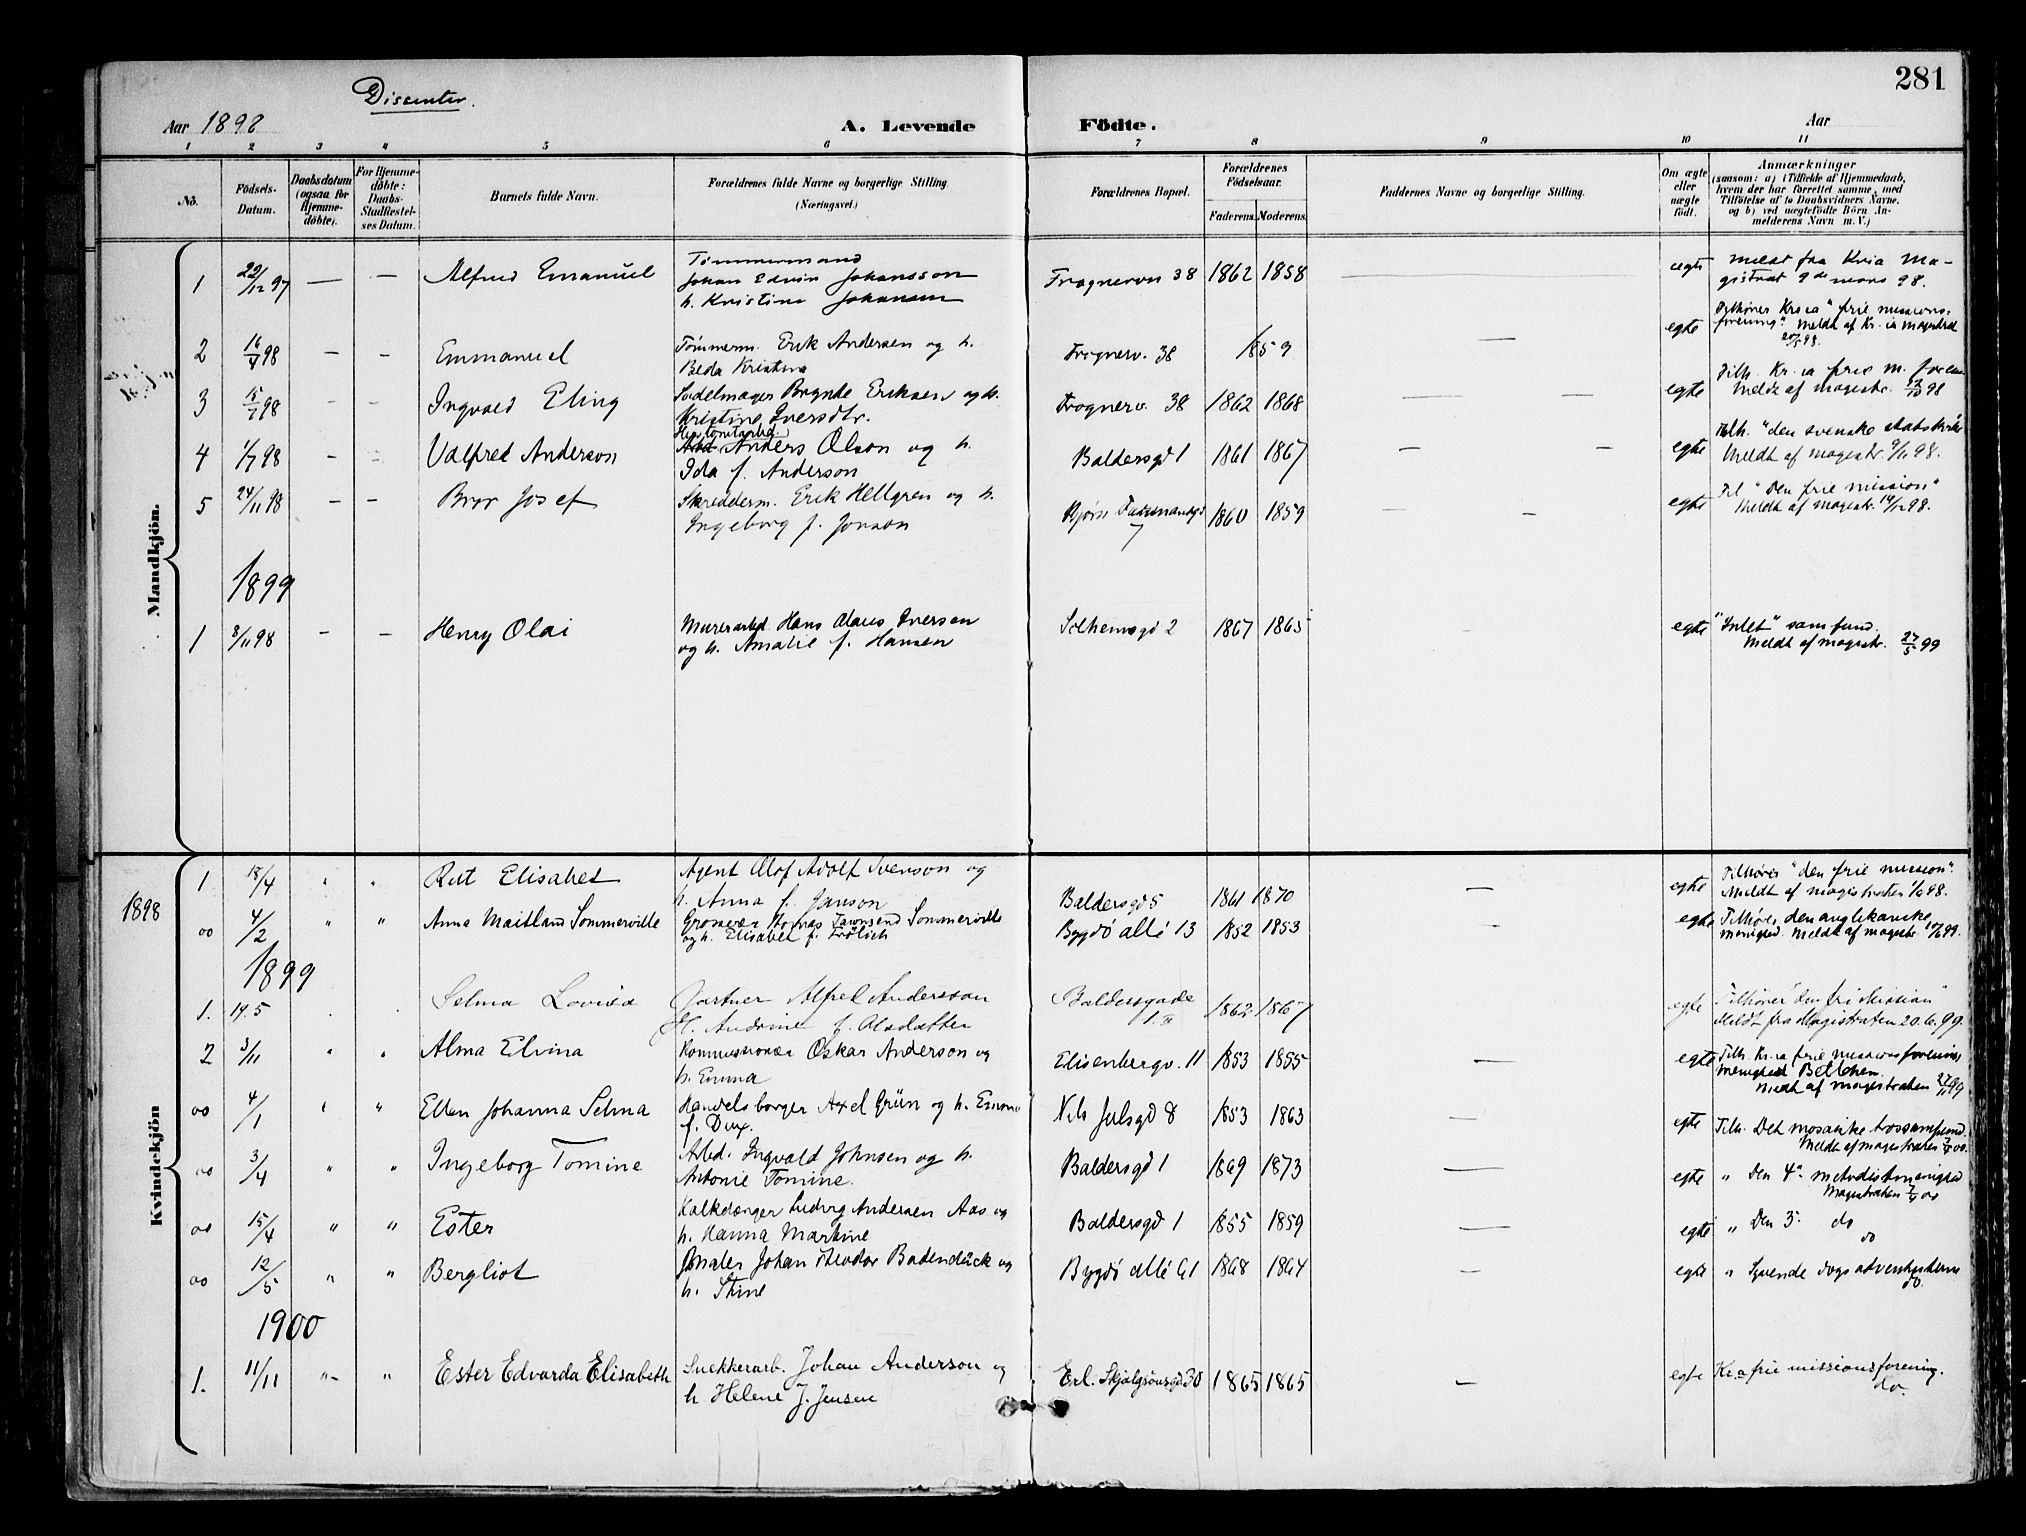 281
Dissenter.
Aar 1898
A. Levende Fødte.
Aar
1 2 3 4 5 6 7 8 9 10 11
No.
Födsels-Datum.
Daabsdatum (ogsaa for Hjemme-döbte).
For Hjemme-döbte: Daabs-Stadfæstel-ses Datum.
Barnets fulde Navn.
Forældrenes fulde Navne og borgerlige Stilling. (Næringsvei.)
Forældrenes Bopæl.
Forældrenes Födselsaar.
Faderens. Moderens.
Faddernes Navne og borgerlige Stilling.
Om ægte eller uægte födt.
Anmærkninger
(saasom: a) i Tilfælde af Hjemmedaab,
hvem der har forrettet samme, med
Tilföielse af to Daabsvidners Navne,
og b) ved uægtefödte Börn An-
melderens Navn m. V.)
Mandkjön.
1 22/12 97 — — Alfred Emanuel
Tømmermand
Johan Edvin Johansson
h. Kristine Johansen
Frognervn 38 1862 1858 — egte
meldt fra Kria Ma-
gistrat 9de mars 98.
2 16/4 98 — — Emmanuel
Tømmerm. Erik Andersen og h.
Beda Kristina
Frognerv. 38 1859 — egte
Tilhører Kr.ia "frie missions-
forening". Meldt af Kr. ia magistrat
20/5 98.
3 15/7 98 — — Ingvald Eling
Sadelmager Brynde Eriksen og h.
Kristine Iversdtr.
Frognerv. 38 1862 1868 — — egte
Tilh. Kr. ia frie m. foren
Meldt af magistr. 98
4 1/7 98 — — Valfred Anderson
Anders Olson og h.
Ida f. Anderson
Baldersgd 1 1861 1867 — — egte
Tilh. "den svenske statskirke
Meldt af magistr. 9/11 98.
5 24/11 98 — — Bror Josef
Skredderm. Erik Hellgren og h.
Ingeborg f. Jonson
Bjørn Farmansgd
7
1860 1859 — — egte
Til "Den frie mission"
Meldt af magistr. 14/12 98.
1899
1 8/11 98 — — Henry Olai
Murerarbd Hans Olaus Iversen
og h. Amalie f. Hansen
Solheimsgd 2 1867 1865 egte
"Intet" samfund.
Meldt af magistr. 27/5 99
Kvindekjön
1898
1 18/4 " " Rut Elisabet
Agent Olof Adolf Svenson og
h. Anna f. Janson
Baldersgd 5 1861 1870 — egte
Tilhører "den frie mission".
Meldt af magistraten 1/6 98.
oo 4/2 " " Anna Maitland Sommerville
Grosserer Thomas Townsend Sommerville
og h. Elisabet f. Frölich
Bygdö allé 13 1852 1853 — egte
Tilhører den anglikanske
menighed. Meldt af magistr. 99.
1899
1. 14.5 Selma Lovisa
Gartner Alfred Andersson
H. Andrine f. Olsdatter
Baldersgade
1.II
1862 1867 egte
Tilhører "den fri Mission"
Meldt fra Magistraten 20.6.99.
2 3/11 " " Alma Elvina
Kommissionær Oskar Anderson og
h. Emma
Elisenbergv. 11 1853 1855 — egte
Tilh. Kr.ia frie missionsforenings
menighed Betlehem.
Meldt af magistraten 27/11 99
oo 4/1 " " Ellen Johanna Selma
Handelsborger Axel Grün og h. Emma
f. Dux.
Nils Julsgd 8 1853 1863 — egte
Tilh. Det mosaiske trossamfund.
Meldt af magistraten oo.
oo 3/4 " " Ingeborg Tomine
Arbd. Ingvald Johnsen og h.
Antonie Tomine.
Baldersgd 1 1869 1873 — egte
" Den 4de metodistmenighed
Magistraten oo
oo 15/4 " " Ester
Kalkslager Ludvig Andersen Aas og
h. Hanna Martine
Baldersgd 1 1855 1859 — egte
" Den 3. do
do
oo 12/5 " " Bergliot
Maler Johan Theodor Badendück og
h. Stine
Bygdö allé 61 1868 1864 — egte
" Syvende dags adventisterne
do.
1900
1. 11/11 " " Ester Edvarda Elisabeth
Snekkerarb. Johan Anderson og
h Helene J. Jensen
Erl. Skjalgsønsgd 30 1865 1865 — egte
Kr.a frie missionsforening.
do.